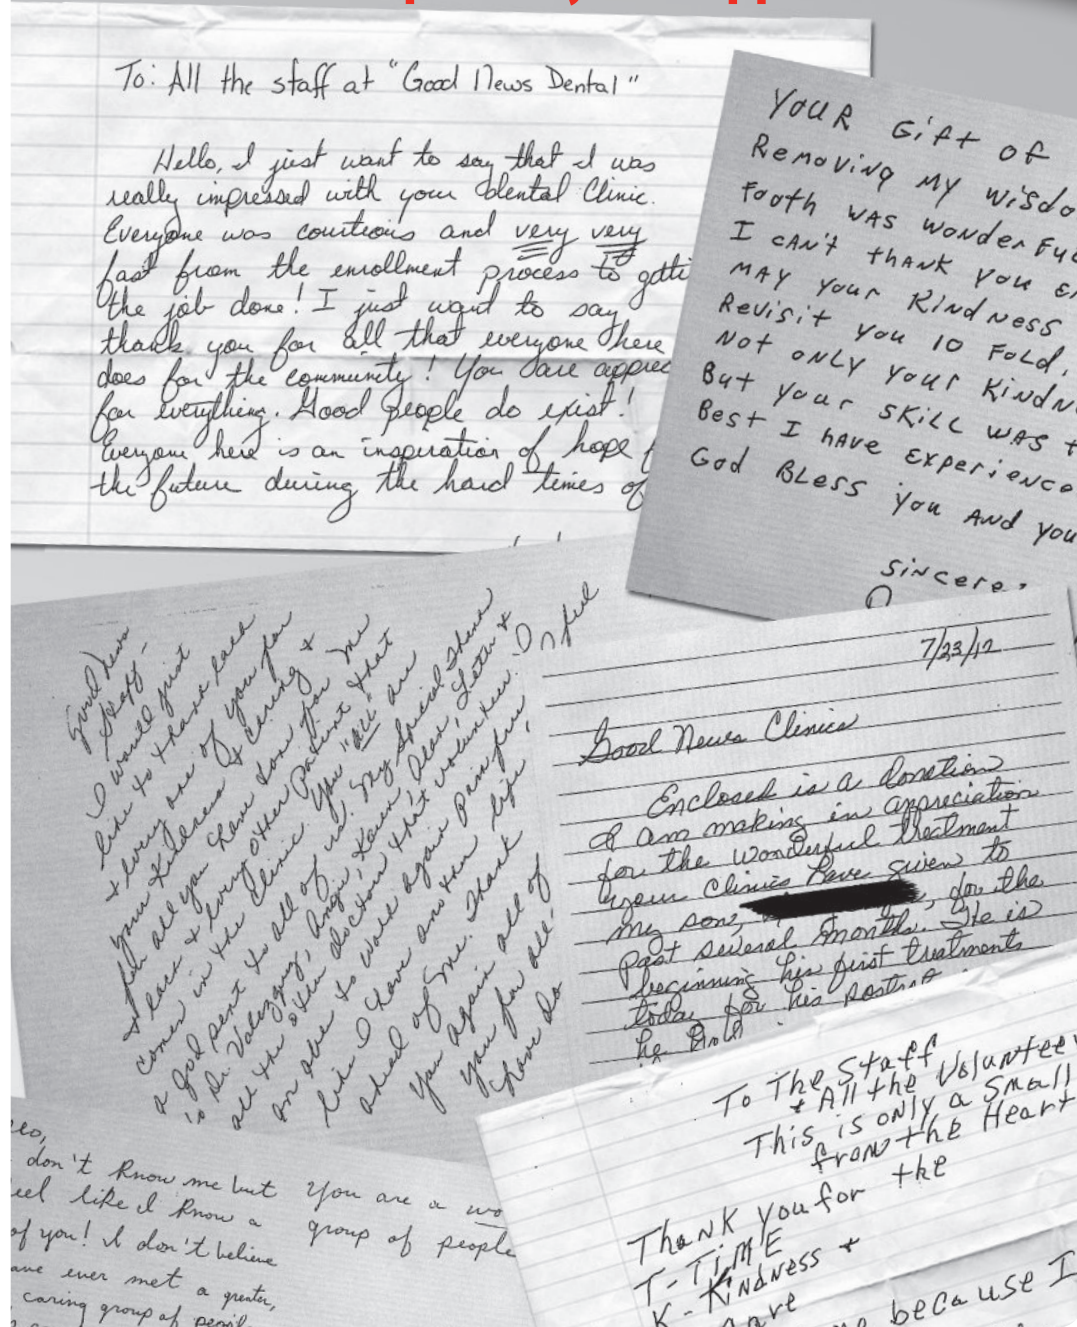 To: All the staff at "Good News Dental"
Hello, I just want to say that I was
really impressed with your dental Clinic.
Everyone was courtious and very very
fast from the enrollment process to getti
the job done! I just want to say
thank you for all that everyone here
does for the community! You are apprec
for everything. Good people do exist!
Everyone here is an inspiration of hope f
the future during the hard times of
YOUR Gift of
Removing MY Wisdo
Tooth WAS WonderFul
I CAN't tHANK You En
MAY Your Kindness
Revisit You 10 FOLD,
Not ONLY Your Kindne
But Your SKILL WAS t
Best I HAVE Experience
God BLess You AND You
Sincere
Good News
Staff-
I would just
like to thank each
& every one of you for
your kindness & caring &
for all you have done for me
& each & every other patient that
comes in the clinic. You "all" are
a god sent to all of us. My special thanks
is Dr. Valezquy, Angie, Karen, Alex, Leta &
all the other doctors that volunteer. I feel
an able to walk again pain free,
like I have another life
ahead of me. Thank
you again all of
you for all
have do
7/23/12
Good News Clinics
Enclosed is a donation
I am making in appreciation
for the wonderful treatment
your Clinics have given to
my son, for the
past several months. He is
beginning his first treatments
today for his
he
To The Staff
& All the Volunteer
This is only a Small
from the Heart
Thank you for the
T-TiME
K-Kindness &
because I
don't know me but
eel like I know a
of you! I don't believe
ave ever met a greater,
caring group of people
You are a wo
group of people